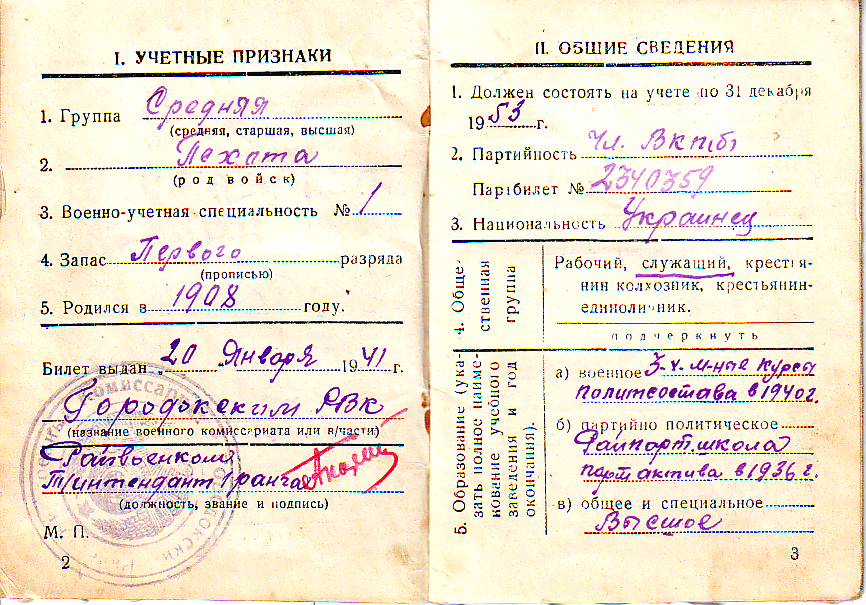 I. УЧЕТНЫЕ ПРИЗНАКИ
1. Группа Средняя
(средняя, старшая, высшая)
2. Пехота
(род войск)
3. Военно-учетная специальность № 1
4. Запас Первого разряда
(прописью)
5. Родился в 1908 году.
Билет выдан „20 " Января 1941 г.
Городокским РВК
(название военного комиссариата или в/части)
Райвоенком
Т/интендант I ранга
(должность, звание и подпись)
М. П.
2
II. ОБЩИЕ СВЕДЕНИЯ
1. Должен состоять на учете по 31 декабря
1953 г.
2. Партийность Чл. ВКП(б)
Партбилет № 2340359
3. Национальность Украинец
4. Обще-
ственная
группа
Рабочий, служащий, крестья-
нин колхозник, крестьянин-
единоличник.
подчеркнуть
5. Образование (ука-
зать полное наиме-
нование учебного
заведения и год
окончания).
а) военное 3-х м-ные курсы
политсостава в 1940 г.
б) партийно политическое
Райпарт. школа
партактива в 1936 г.
в) общее и специальное
Высшое
3